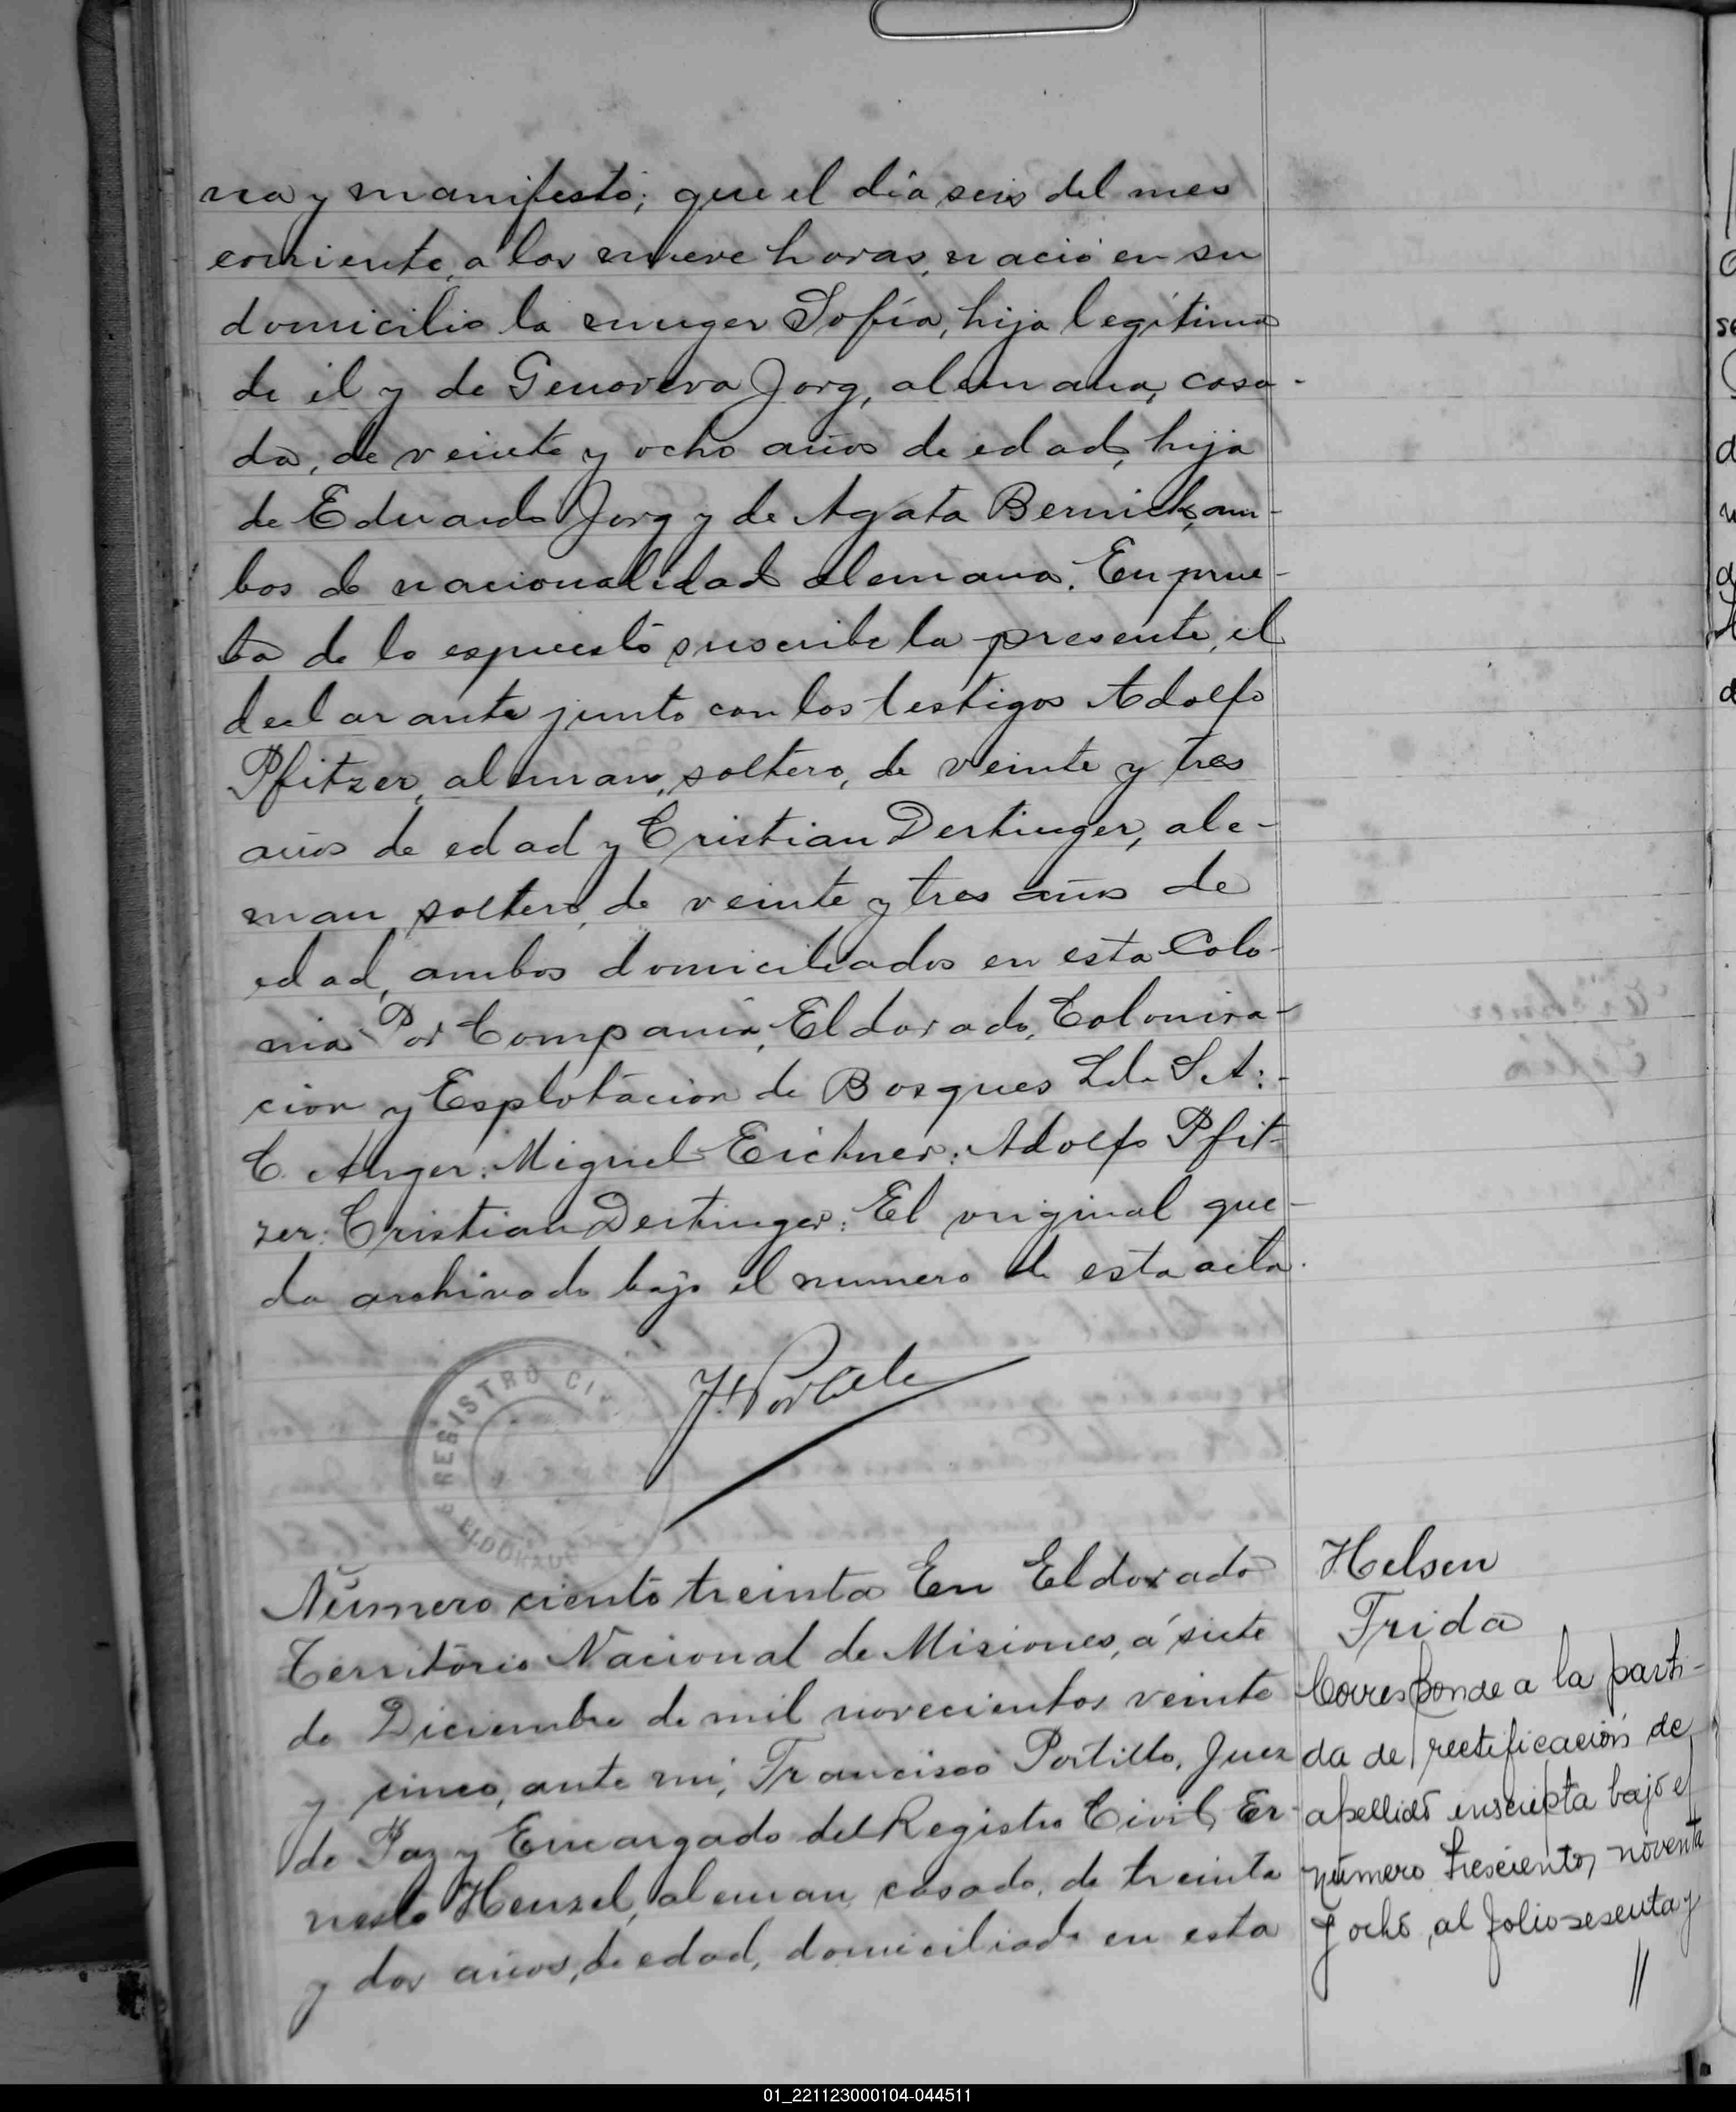 na y manifestó; que el día seis del mes
corriente, a las nueve horas, nació en su
domicilio la muger Sofía, hija legítima
de él y de Genoveva Jorg, alemana, casa-
da, de veinte y ocho años de edad, hija
de Eduardo Jorg y de Agata Bernick, am-
bos de nacionalidad alemana. En prue-
ba de lo espuesto suscribe la presente, el
declarante junto con los testigos Adolfo
Pfitzer, aleman, soltero, de veinte y tres
años de edad y Cristian Dertinger, ale-
man, soltero, de veinte y tres años de
edad, ambos domiciliados en esta Colo-
nia Por Compañía, Eldorado, Coloniza-
cion y Esplotacion de Bosques Lda S. A:-
C. Anger: Miguel Eichner: Adolfo Pfit-
zer: Cristian Dertinger: El original que-
da archivado bajo el numero de esta acta.
REGISTRO CIV
ELDORADO
Número ciento treinta En Eldorado
Territorio Nacional de Misiones, á siete
de Diciembre de mil novecientos veinte
y cinco, ante mi, Francisco Portillo, Juez
de Paz y Encargado del Registro Civil, Er-
nesto Hensel, aleman, casado, de treinta
y dos años, de edad, domiciliado en esta
Helsen
Frida
Corresponde a la parti-
da de rectificación de
apellido inscripta bajo el
número trescientos noventa
y ocho, al folio sesenta y
//
01_221123000104-044511